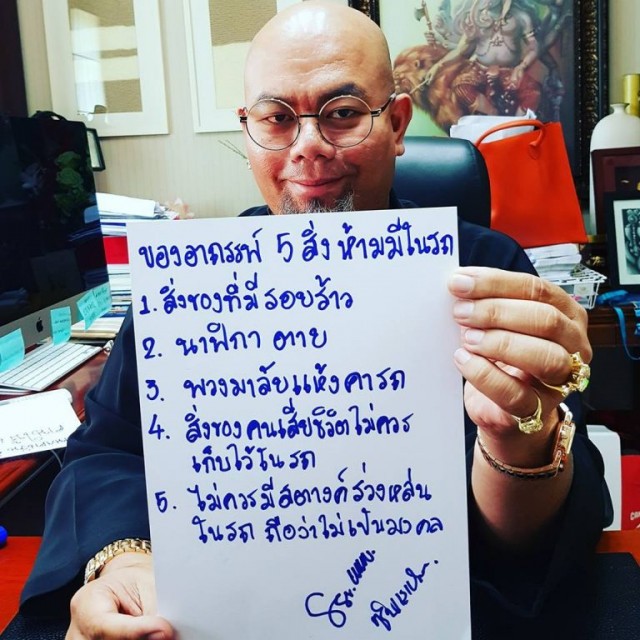 ของอาถรรพ์ 5 สิ่ง ห้ามมีในรถ
1. สิ่งของที่มีรอยร้าว
2. นาฬิกา ตาย
3. พวงมาลัยแห้งคารถ
4. สิ่งของคนเสียชีวิตไม่ควร
เก็บไว้ในรถ
5. ไม่ควรมีสตางค์ร่วงหล่น
ในรถ ถือว่าไม่เป็นมงคล